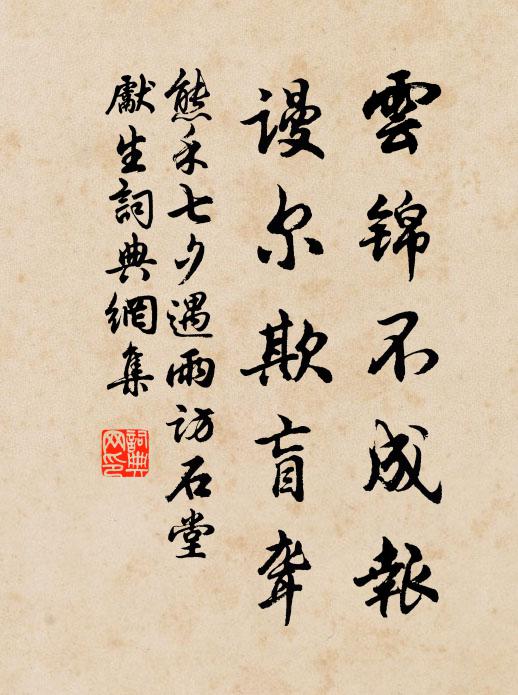 雲錦不成報
謾尔欺盲聾
熊禾七夕遇雨訪石堂
獻生詞典網集
詞典網印